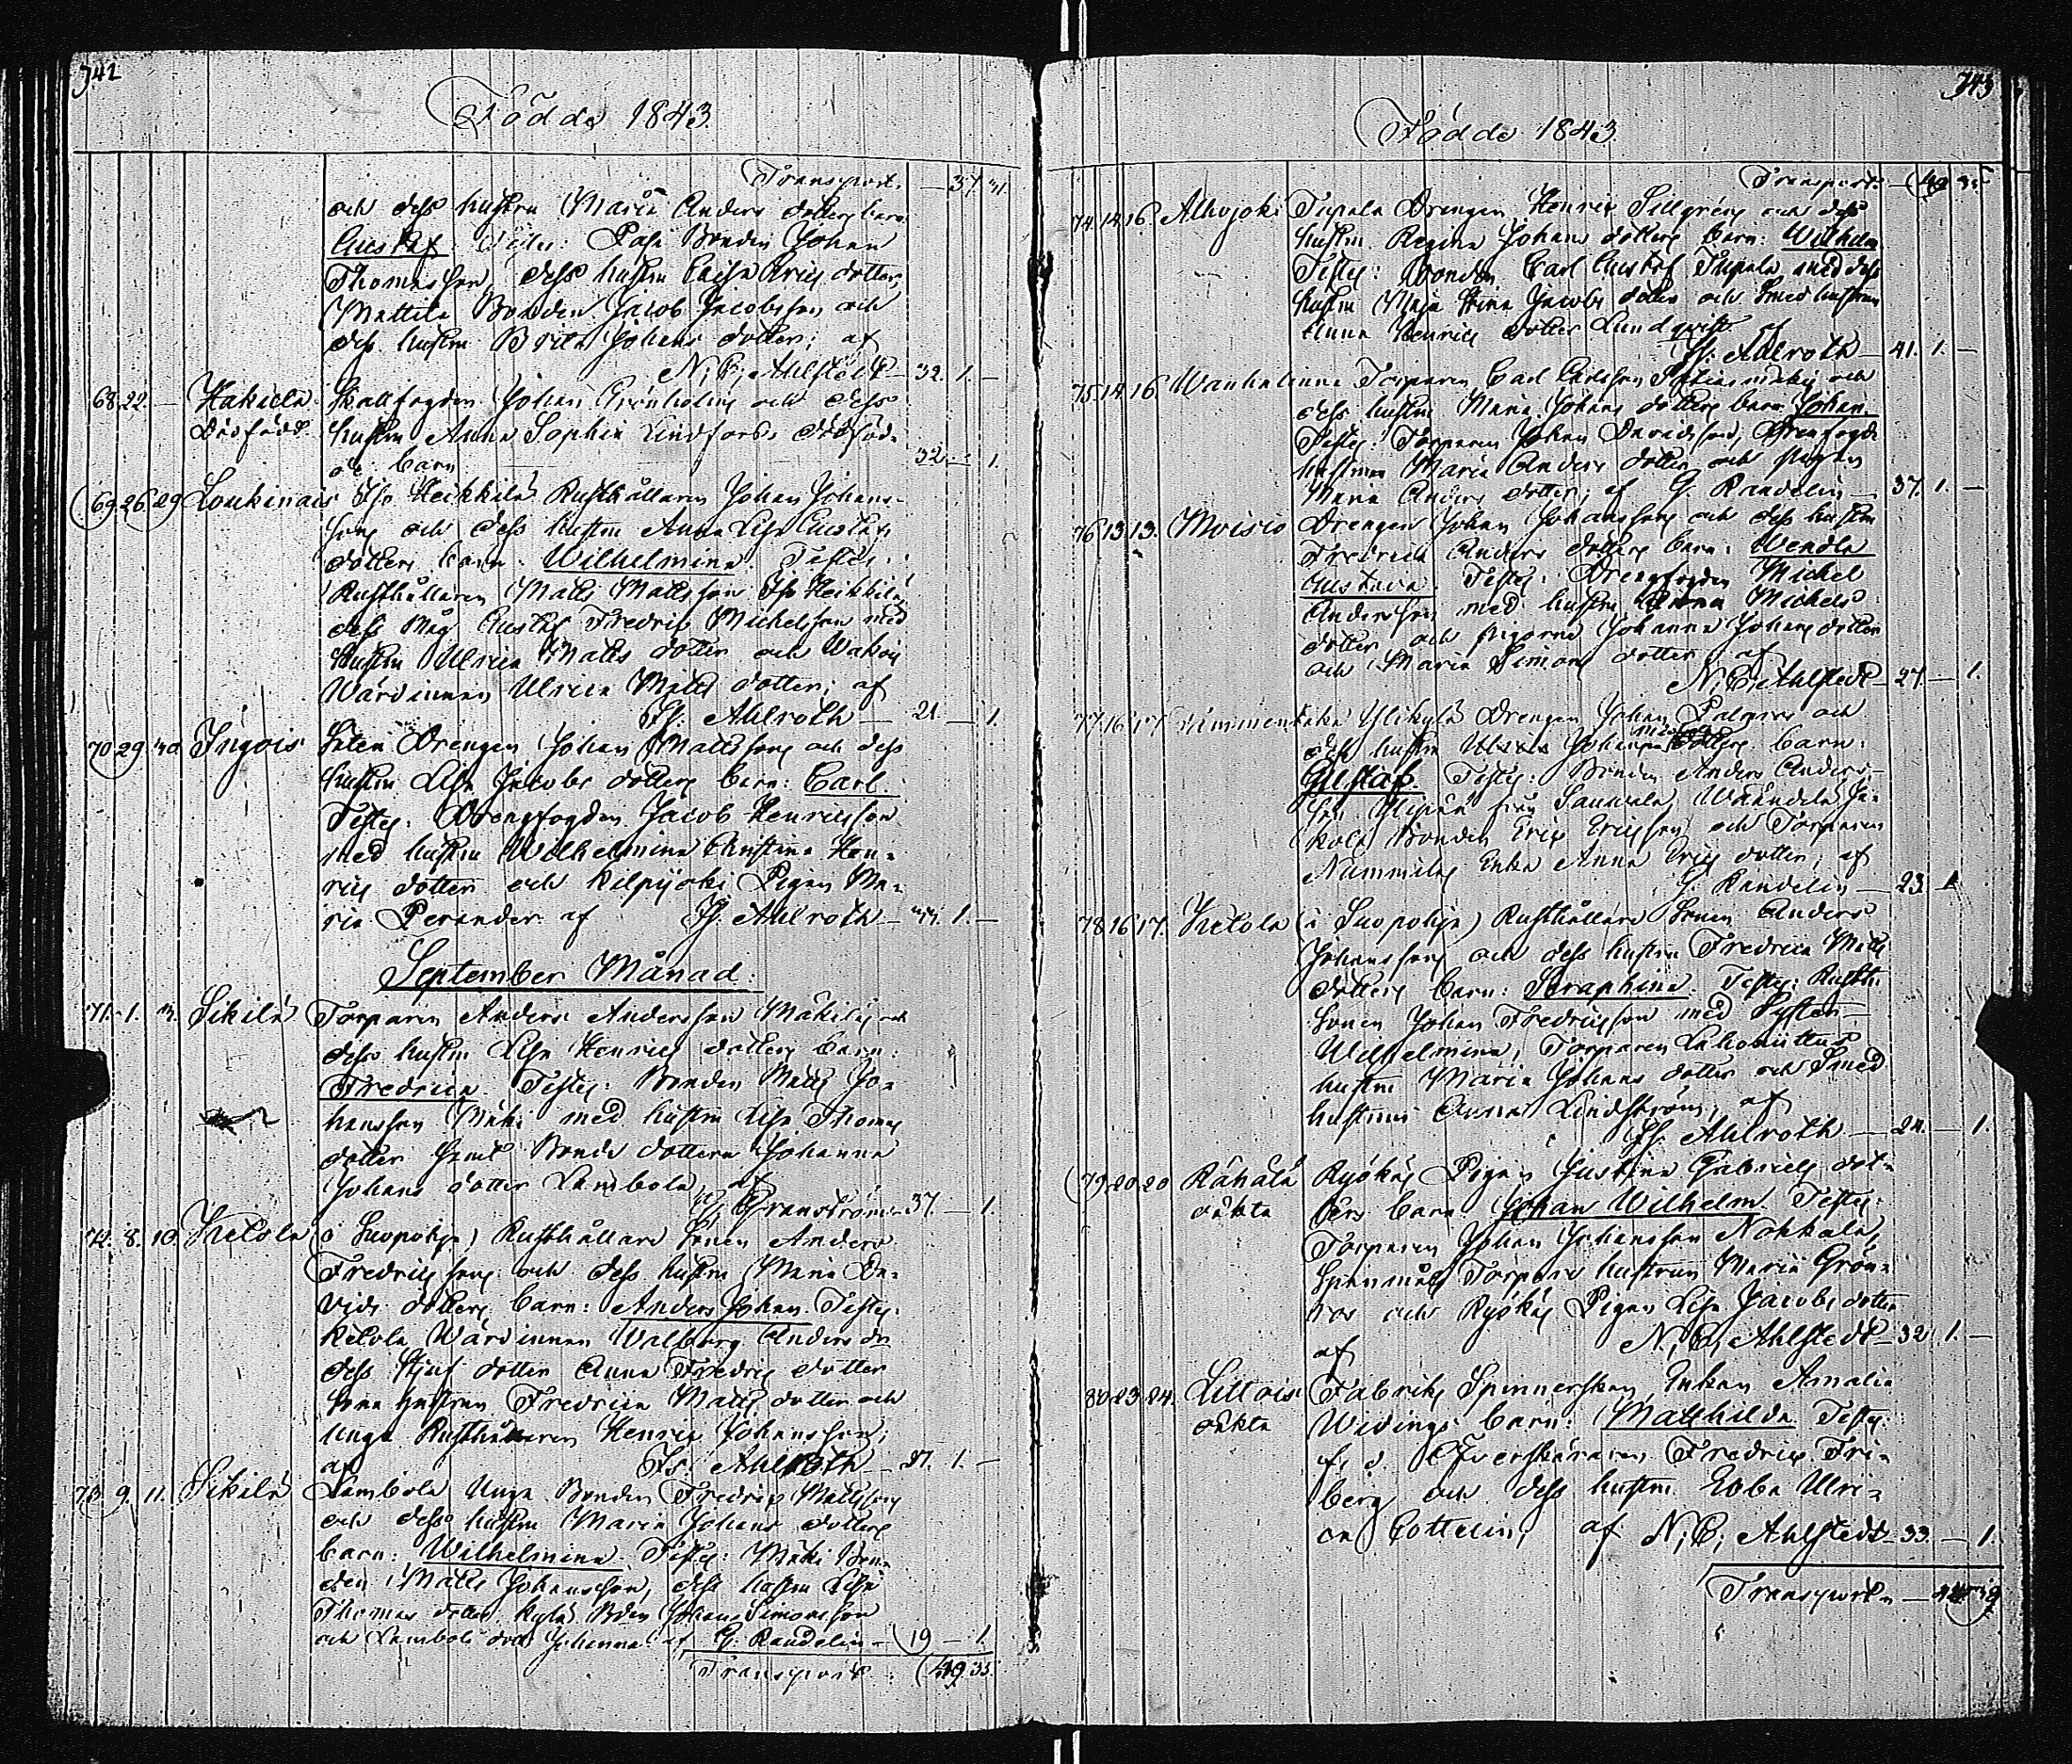 742
Födde 1843.
Transport. — 37. 31.
och dess hustru Maria Anders dotters barn
Gustaf. Testes: Pasa Bonden Johan
Thomasson, dess hustru Caisa Erics dotter,
Mattila Bonden Jacob Jacobsson och
dess hustru Brita Johans dotter; af
N. C. Ahlstedt — 32. 1. —
68. 22. — Hakiala Skallfogden Johan Grönholm och dess
Dödfödt hustru Anna Sophia Lindfors's dödföd-
de barn 32. — 1.
69. 26. 29 Loukinais Iso Heikkilä Rusthållaren Johan Johans-
son och dess hustru Anna Lisa Gustafs
dotters barn: Wilhelmina. Testes:
Rusthållaren Matts Mattsson Iso Heikkilä,
dess Måg Gustaf Fredric Michelsson med
hustru Ulrica Matts dotter och
Wärdinnan Ulrica Matts dotter; af
Fr. Ahlroth — 21. — 1.
70. 29. 30. Ingois Drengen Johan Mattsson och dess
hustru Lisa Jacobs dotters barn: Carl.
Testes: Drengfogden Jacob Henricsson
med hustru Wilhelmina Christina Hen-
rics dotter och Kilpijoki Pigan Ma-
ria Perander. af Fr. Ahlroth — 44. 1. —
September Månad.
71. 1. 3. Sikilä Torparen Anders Andersson Mäkilä och
dess hustru Lisa Henrics dotters barn:
Fredrica. Testes: Bonden Matts Jo-
hansson Mäki med hustru Lisa Thomas
dotter samt Bonde dottern Johanna
Johans dotter Lambola, af
Granström 37. — 1.
72. 8. 10. Ketola (o Suopohja) Rusthållare Sonen Anders
Fredricsson och dess hustru Maria Da-
vids dotters barn: Anders Johan. Testes:
Ketola Wärdinnan Walborg Anders dr
dess Stjuf dotter Anna Fredrics dotter
Sona hustrun Fredrica Matts dotter och
Unga Rusthållaren Henric Johansson;
af Fr. Ahlroth — 31. 1. —
73. 9. 11. Sikilä Lambola Unga Bonden Fredric Mattsson
och dess hustru Maria Johans dotters
barn: Wilhelmina. Testes: Mäki Bon-
den Matts Johansson, dess hustru Lisa
Thomas dotter, Kylä Bden Johan Simonsson
och Lambola dottr Johanna. af G. Randelin — 19 — 1.
Transport: 39 35.
743
Födde 1843.
Transport. — 35
74. 14. 16. Alhojoki Tupala Drengen Henric Sellgrens och dess
hustru Regina Johans dotters barn: Wilhelm
Testes: Bonden Carl Gustaf Tupala med dess
hustru Maja Stina Jacobs dotter och Smed hustrun
Anna Henrics dotter Lundqvist af
Fr. Ahlroth — 41. 1. —
75. 14. 16. Wanhalinna Torparen Carl Carlsson och
dess hustru Maria Johans dotters barn Johan.
Testes: Torparen Johan Davidsson, Drengfogde
hustrun Maria Anders dotter och pigan
Maria Anders dotter; af G. Randelin — 37. 1. —
76. 13. 13. Moisio Drengen Johan Johanssons och dess hustru
Fredrica Anders dotters barn: Wendla
Gustava. Testes: Drengfogden Michel
Andersson med hustru Anna Michels
dotter och pigorna Johanna Johans dotter
och Maria Simons dotter af
N. C. Ahlstedt — 27. — 1.
77. 16. 17. Ylikylä Drengen Johan Palmros och
dess hustru Ulrica dotters barn:
Gustaf. Testes: Bonden Anders Anders-
son Ylipää från Sauvala, Wääntelä Ja-
kola Bonden Eric Ericsson och Torparen
Nummilas Enka Anna Erics dotter; af
G. Randelin — 23. 1
78. 16. 17. Ketola (i Suopohja) Rusthållare Sonen Anders
Johansson och dess hustru Fredrica Matts
dotters barn: Seraphina. Testes: Rusth:
Sonen Johan Fredricsson med Systern
Wilhelmina, Torparen
hustru Maria Johans dotter och Smed
hustrun Anna Lindström; af
Fr. Ahlroth — 24. — 1.
79. 20. 20 Rähälä Ryökäs Pigan Justina Gabriels dot-
oäkta ters barn Johan Wilhelm. Testes:
Torparen Johan Johansson Nokkala,
Spannmåls Torpare hustrun Maria Grön-
ros och Ryökäs Pigan Lisa Jacobs dotter
af N. C. Ahlstedt — 32. 1. —
80. 23. 24. Littois Fabriks Spinnerskan Enkan Amalia
oäkta Widings barn: Mathilda. Testes:
f. d. Öfverskäraren Fredric Fri-
berg och dess hustru Ebba Ulri-
ca Cottelin; af N. C. Ahlstedt — 33. — 1.
Transport —